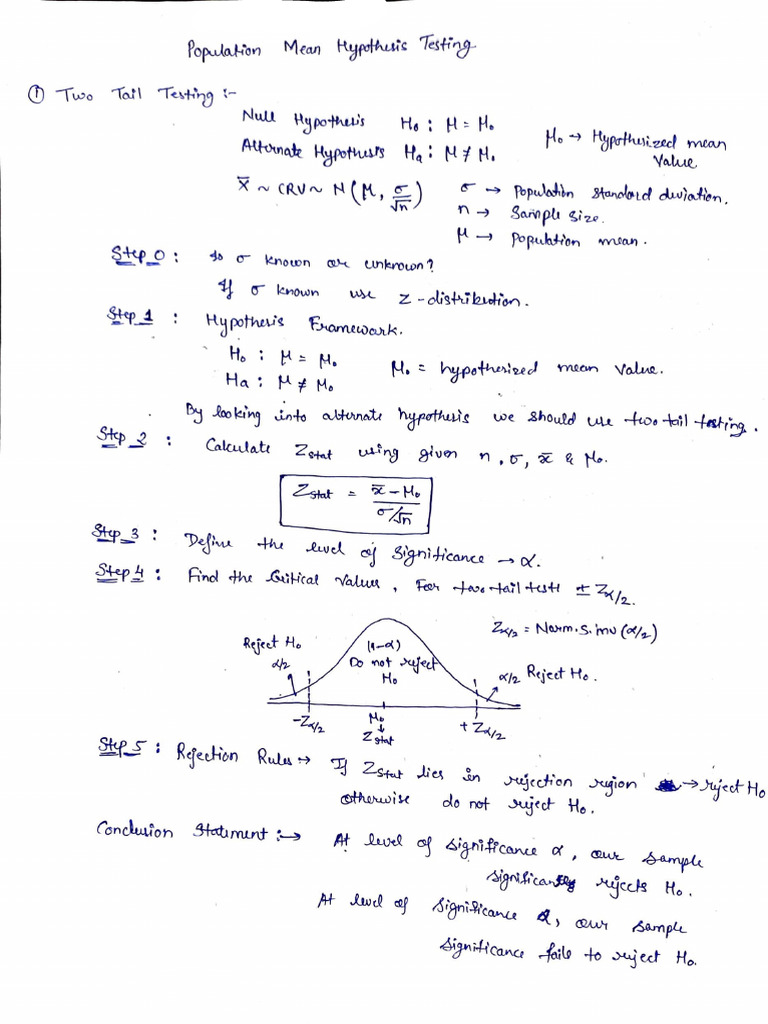 Population Mean Hypothesis Testing
① Two Tail Testing :-
Null Hypothesis H₀ : μ = μ₀
Alternate Hypothesis Hₐ : μ ≠ μ₀
μ₀ → Hypothesized mean value
x̄ ~ CRV ~ N(μ, σ/√n)
σ → Population standard deviation.
n → Sample size.
μ → Population mean.
Step_0 : Is σ known or unknown?
If σ known use Z-distribution.
Step_1 : Hypothesis Framework.
H₀ : μ = μ₀
Ha : μ ≠ μ₀
μ₀ = hypothesized mean value.
By looking into alternate hypothesis we should use two tail testing.
Step_2 : Calculate Zstat using given n, σ, x̄ & μ₀.
Zstat = (x̄ - μ₀) / (σ/√n)
Step_3 : Define the level of significance → α.
Step 4 : Find the Critical Values, For two tail test ± Zα/2.
Zα/2 = Norm.S.inv(α/2)
Reject H₀
α/2
(1-α)
Do not reject
H₀
α/2 Reject H₀.
-Zα/2
μ₀
↓
Zstat
+Zα/2
Step_5 : Rejection Rules → If Zstat lies in rejection region → reject H₀
otherwise do not reject H₀.
Conclusion Statement :→ At level of significance α, our sample
significantly rejects H₀.
At level of significance α, our sample
significance fails to reject H₀.